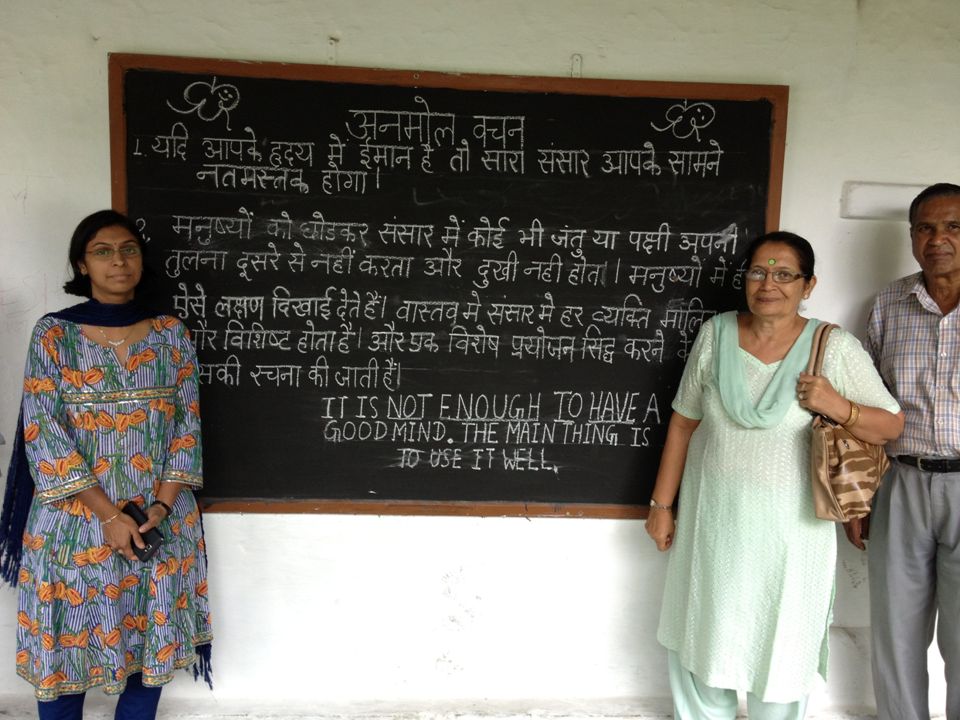 अनमोल वचन
1. यदि आपके हृदय में ईमान है तो सारा संसार आपके सामने
नतमस्तक होगा।
2. मनुष्यों को छोडकर संसार में कोई भी जंतु या पक्षी अपनी
तुलना दूसरे से नहीं करता और दुखी नही होता। मनुष्यों में ही
ऐसे लक्षण दिखाई देते हैं। वास्तव मे संसार मे हर व्यक्ति
और विशिष्ट होता हैं। और एक विशेष प्रयोजन सिद्ध करने के
रचना की जाती हैं।
IT IS NOT ENOUGH TO HAVE A
GOOD MIND. THE MAIN THING IS
TO USE IT WELL.